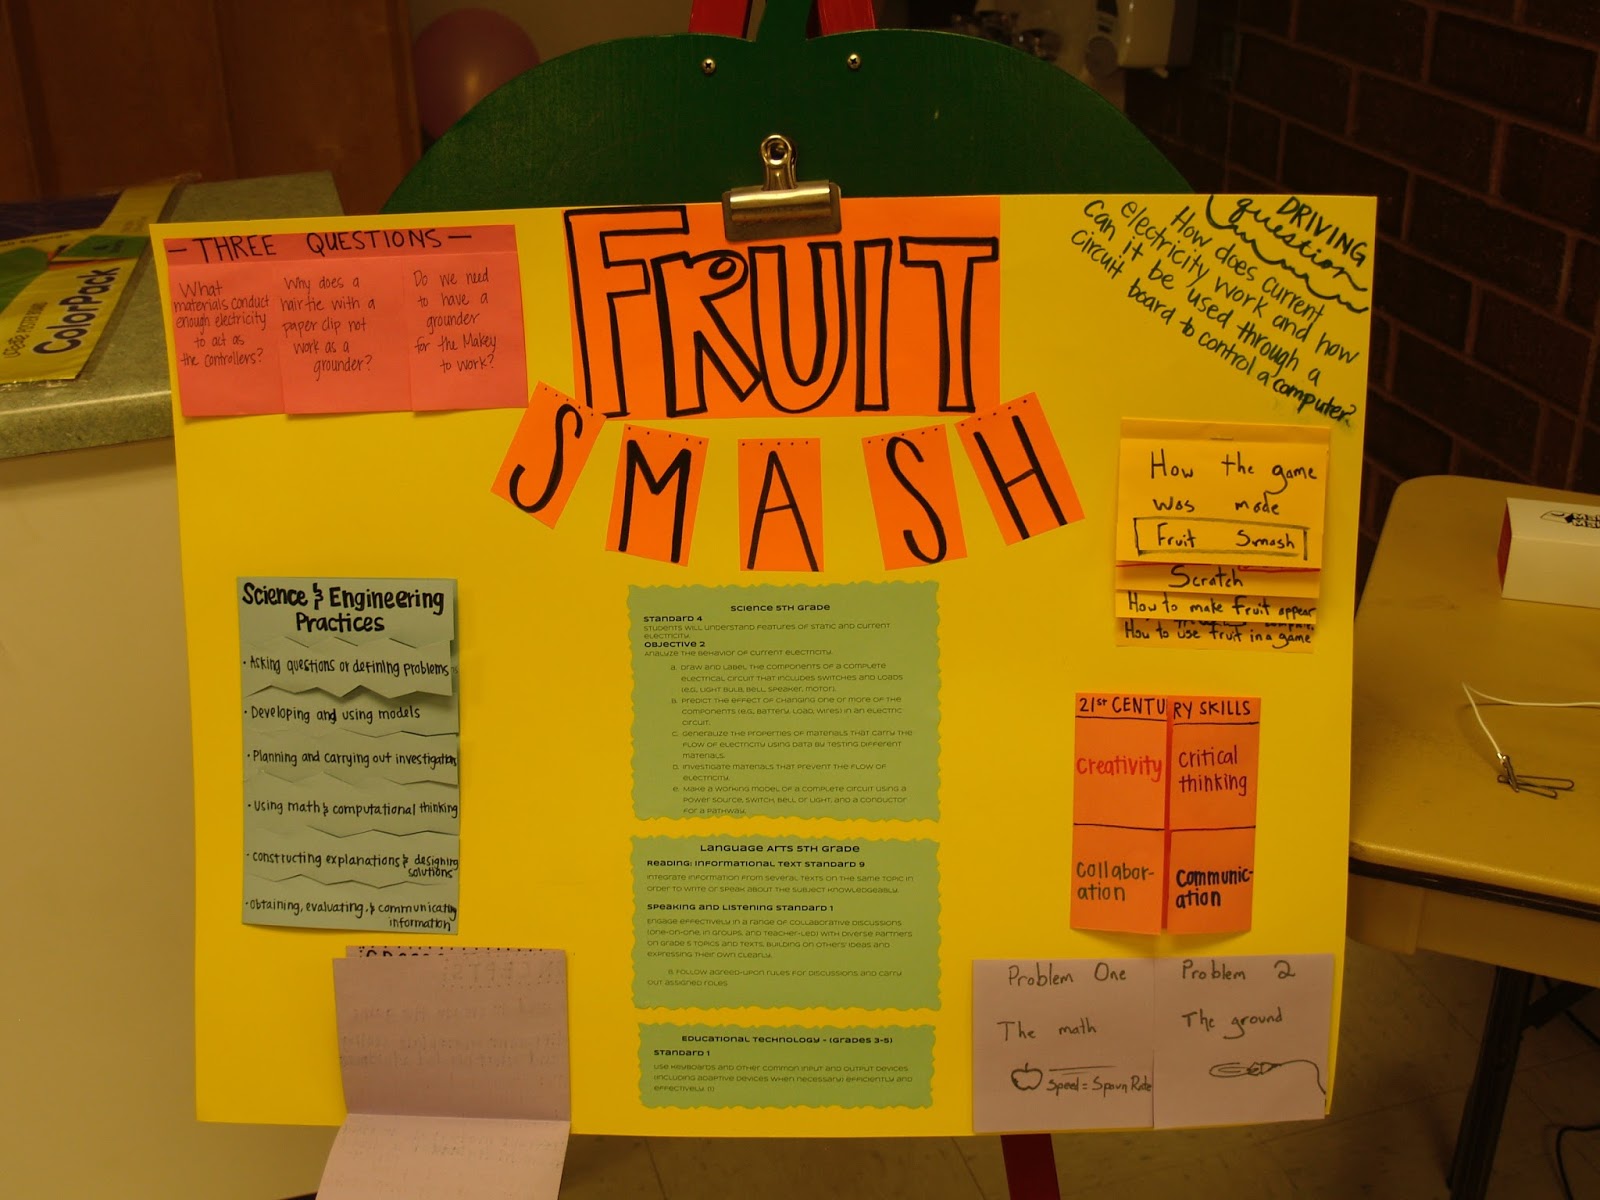 — THREE QUESTIONS —
What
materials conduct
enough electricity
to act as
the controllers?
Why does a
hair tie with a
paper clip not
work as a
grounder?
Do we need
to have a
grounder
for the Makey
to work?
FRUIT
SMASH
DRIVING
question
How does current
electricity work and how
can it be used through a
circuit board to control a computer?
ColorPack
How the game
was made
Fruit Smash
Scratch
How to make fruit appear
How to use fruit in a game
Science & Engineering
Practices
• Asking questions or defining problems
• Developing and using models
• Planning and carrying out investigation
• Using math & computational thinking
• constructing explanations & designing
solutions
• obtaining, evaluating, & communicating
information
Science 5th Grade
Standard 4
Students will understand features of static and current
electricity.
Objective 2
Analyze the behavior of current electricity.
a. Draw and label the components of a complete
electrical circuit that includes switches and loads
(e.g., light bulb, bell, speaker, motor).
b. Predict the effect of changing one or more of the
components (e.g., battery, load, wires) in an electric
circuit.
c. Generalize the properties of materials that carry the
flow of electricity using data by testing different
materials.
d. Investigate materials that prevent the flow of
electricity.
e. Make a working model of a complete circuit using a
power source, switch, bell or light, and a conductor
for a pathway.
Language Arts 5th Grade
Reading: Informational Text Standard 9
Integrate information from several texts on the same topic in
order to write or speak about the subject knowledgeably.
Speaking and Listening Standard 1
Engage effectively in a range of collaborative discussions
(one-on-one, in groups, and teacher-led) with diverse partners
on grade 5 topics and texts, building on others' ideas and
expressing their own clearly.
B. Follow agreed-upon rules for discussions and carry
out assigned roles.
Educational Technology - (Grades 3-5)
Standard 1
Use keyboards and other common input and output devices
(including adaptive devices when necessary) efficiently and
effectively. (1)
21st CENTURY SKILLS
creativity
critical
thinking
collabor-
ation
communic-
ation
Problem One
The math
Speed = Spawn Rate
Problem 2
The ground